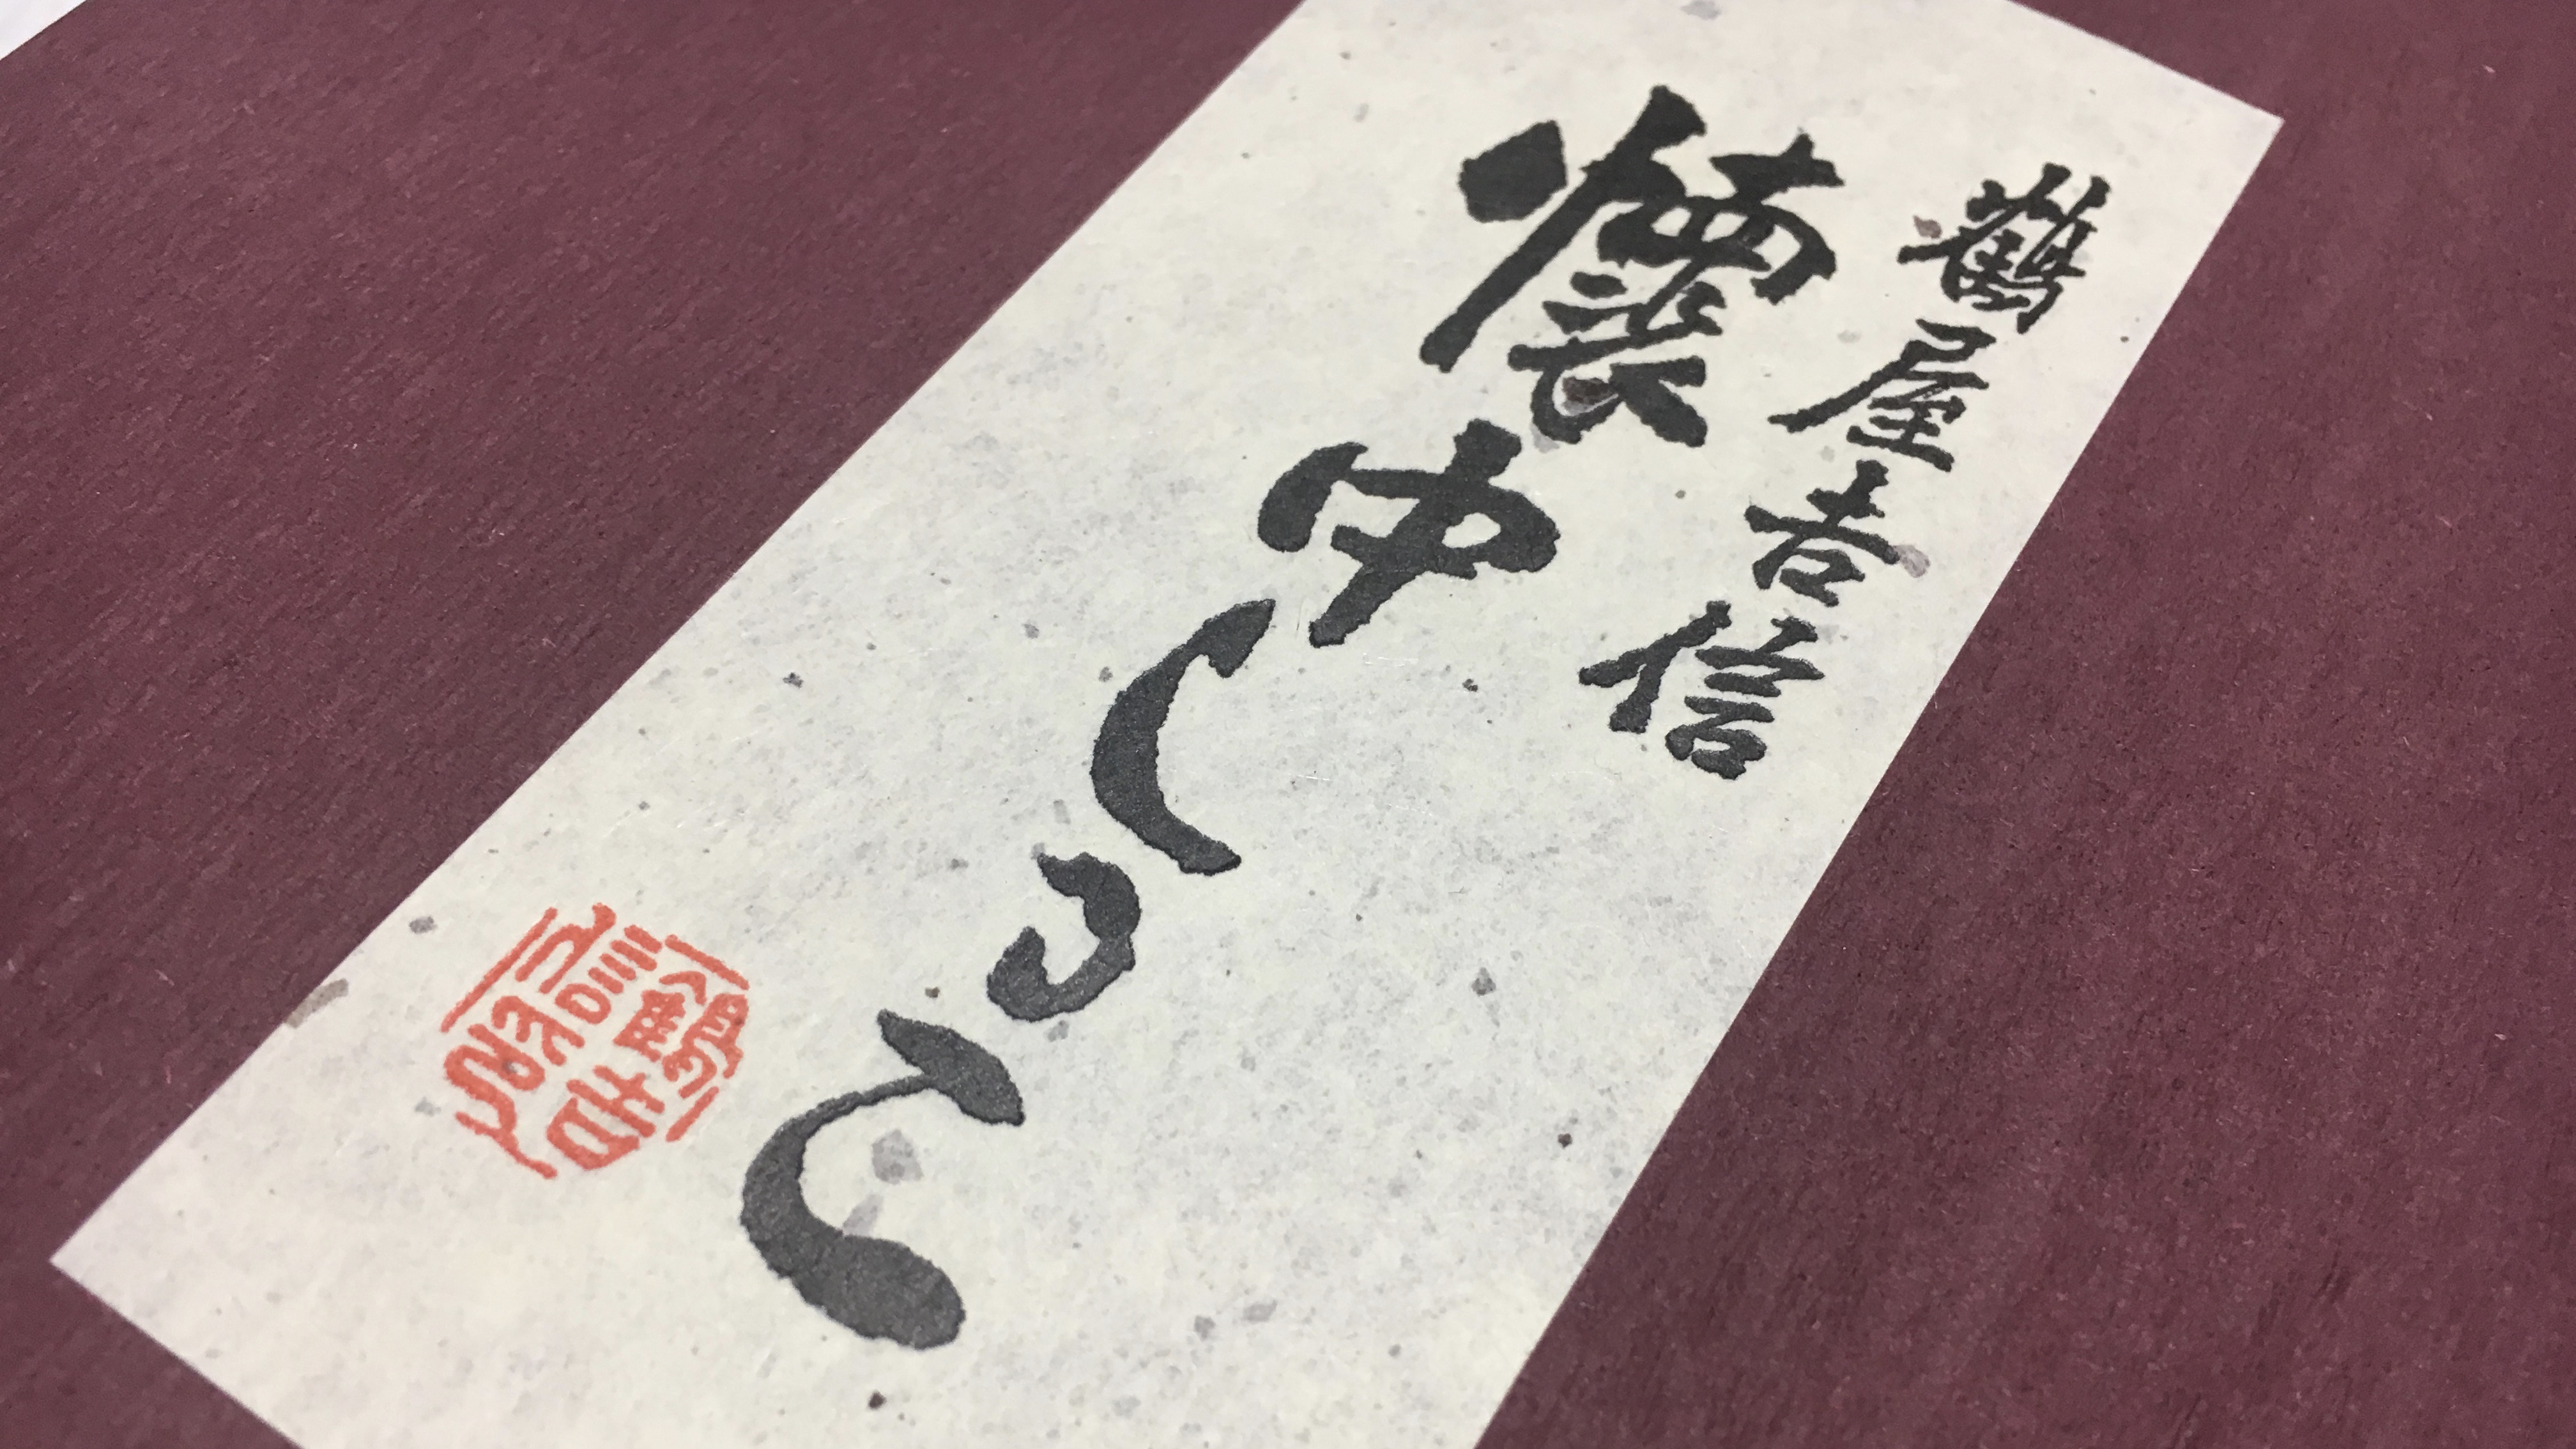 鶴屋吉信
懐中しるこ